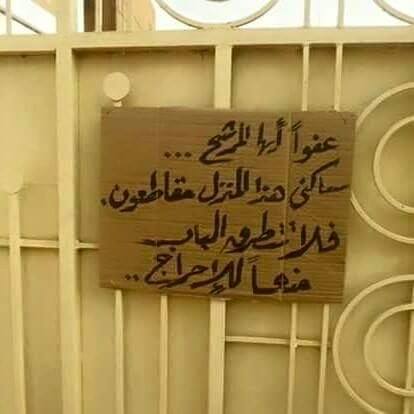 عفواً أيها المرشح ...
ساكني هذا المنزل مقاطعون.
فلا تطرق الباب
منعاً للإحراج ..